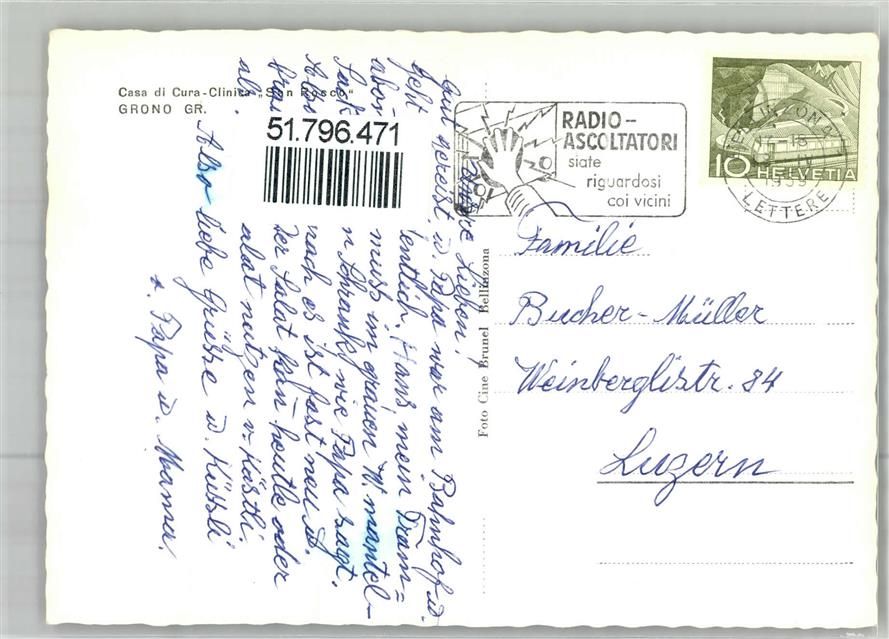 Casa di Cura-Clinica „San Rosco“
GRONO GR.
51.796.471
RADIO-
ASCOLTATORI
siate
riguardosi
coi vicini
BELLINZONA
1959
LETTERE
10 HELVETIA
Foto Cine Brunel Bellinzona
Familie
Bucher-Müller
Weinberglistr. 84
Luzern
Lieben!
Gut gereist. u. Papa war am Bahnhof u.
geht entlich. Hans, mein Tram=
abon muss im grauen W. mantel-
sack n Schrank wie Papa sagt.
Also nach es ist fast neu u.
Der Salat kan heute oder
alat nutzen v= Kästli.
Also liebe Grüsse u. Küssli
v. Papa u. Mama.